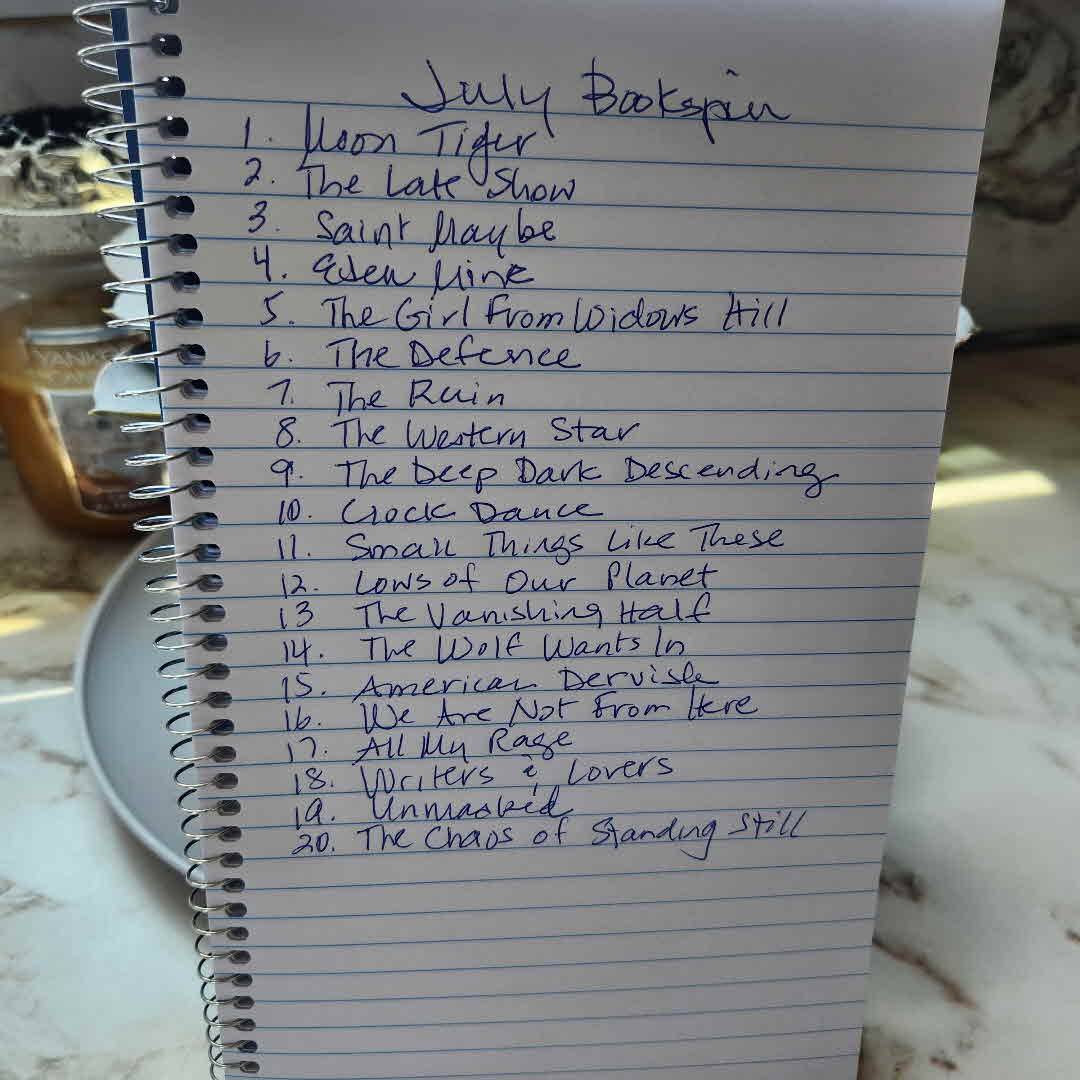 July Bookspin
1. Moon Tiger
2. The Late Show
3. Saint Maybe
4. Eden Mine
5. The Girl From Widows Hill
6. The Defence
7. The Ruin
8. The Western Star
9. The Deep Dark Descending
10. Clock Dance
11. Small Things Like These
12. Lows of Our Planet
13 The Vanishing Half
14. The Wolf Wants In
15. American Dervish
16. We Are Not From Here
17. All My Rage
18. Writers & Lovers
19. Unmasked
20. The Chaos of Standing Still